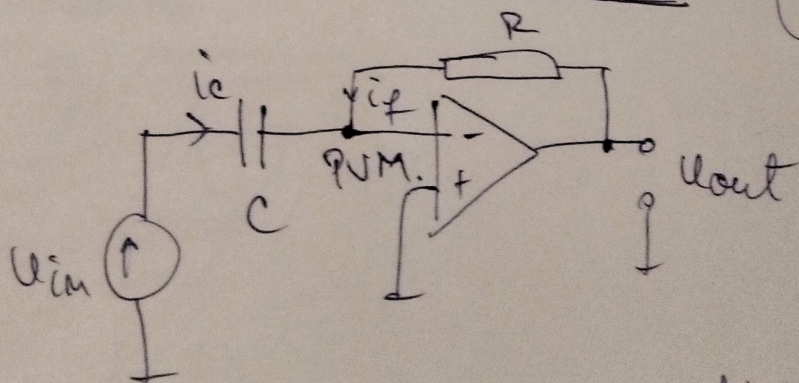 R
ic
if
-
PVM.
+
C
Uin
Uout